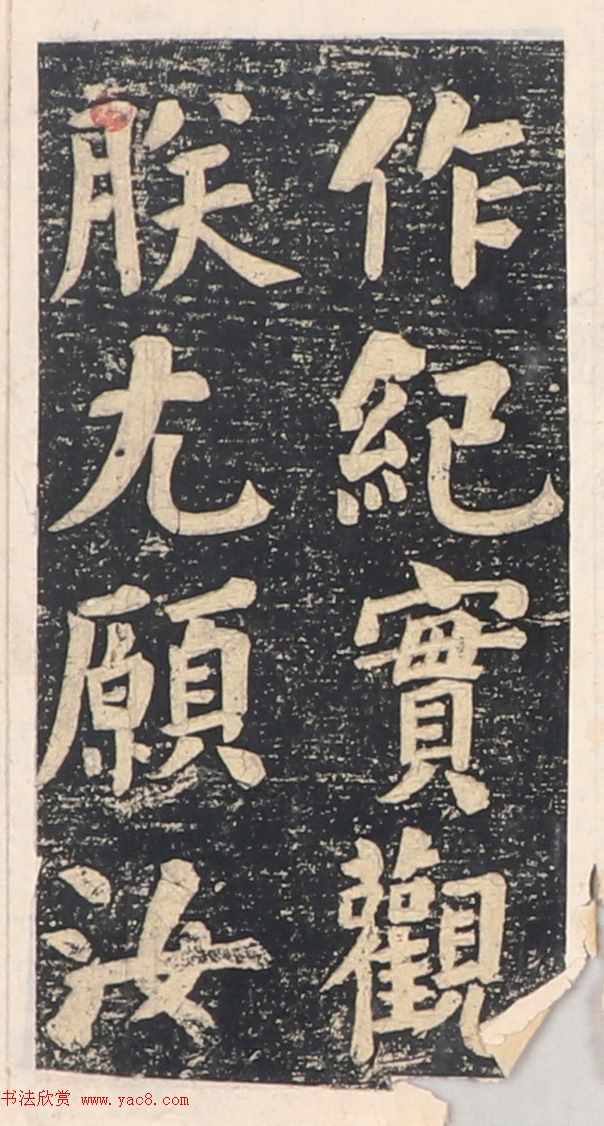 作紀實觀
朕尤願汝
书法欣赏 www.yac8.com